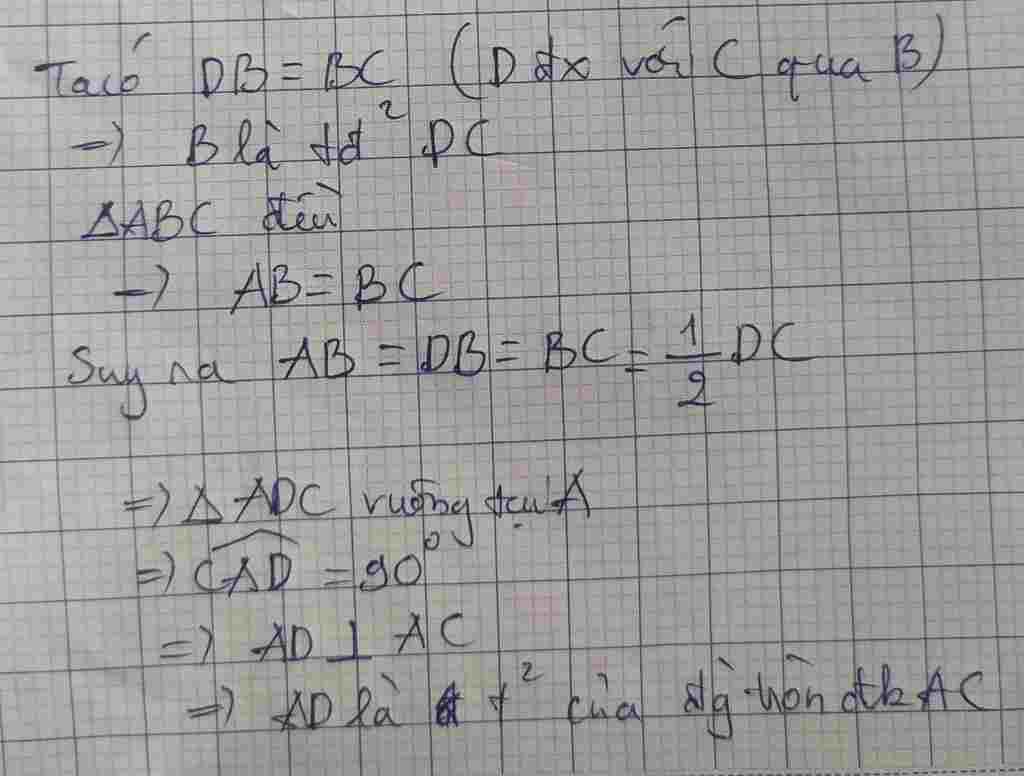 Ta có DB = BC (D đx với C qua B)
=> B là tđ² DC
ΔABC đều
=> AB = BC
Suy ra AB = DB = BC = 1/2 DC
=> Δ ADC vuông tại A
=> CAD = 90⁰
=> AD ⊥ AC
=> AD là t² của đg tròn đk AC